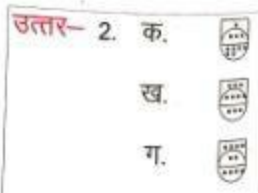 उत्तर– 2. क.
ख.
ग.